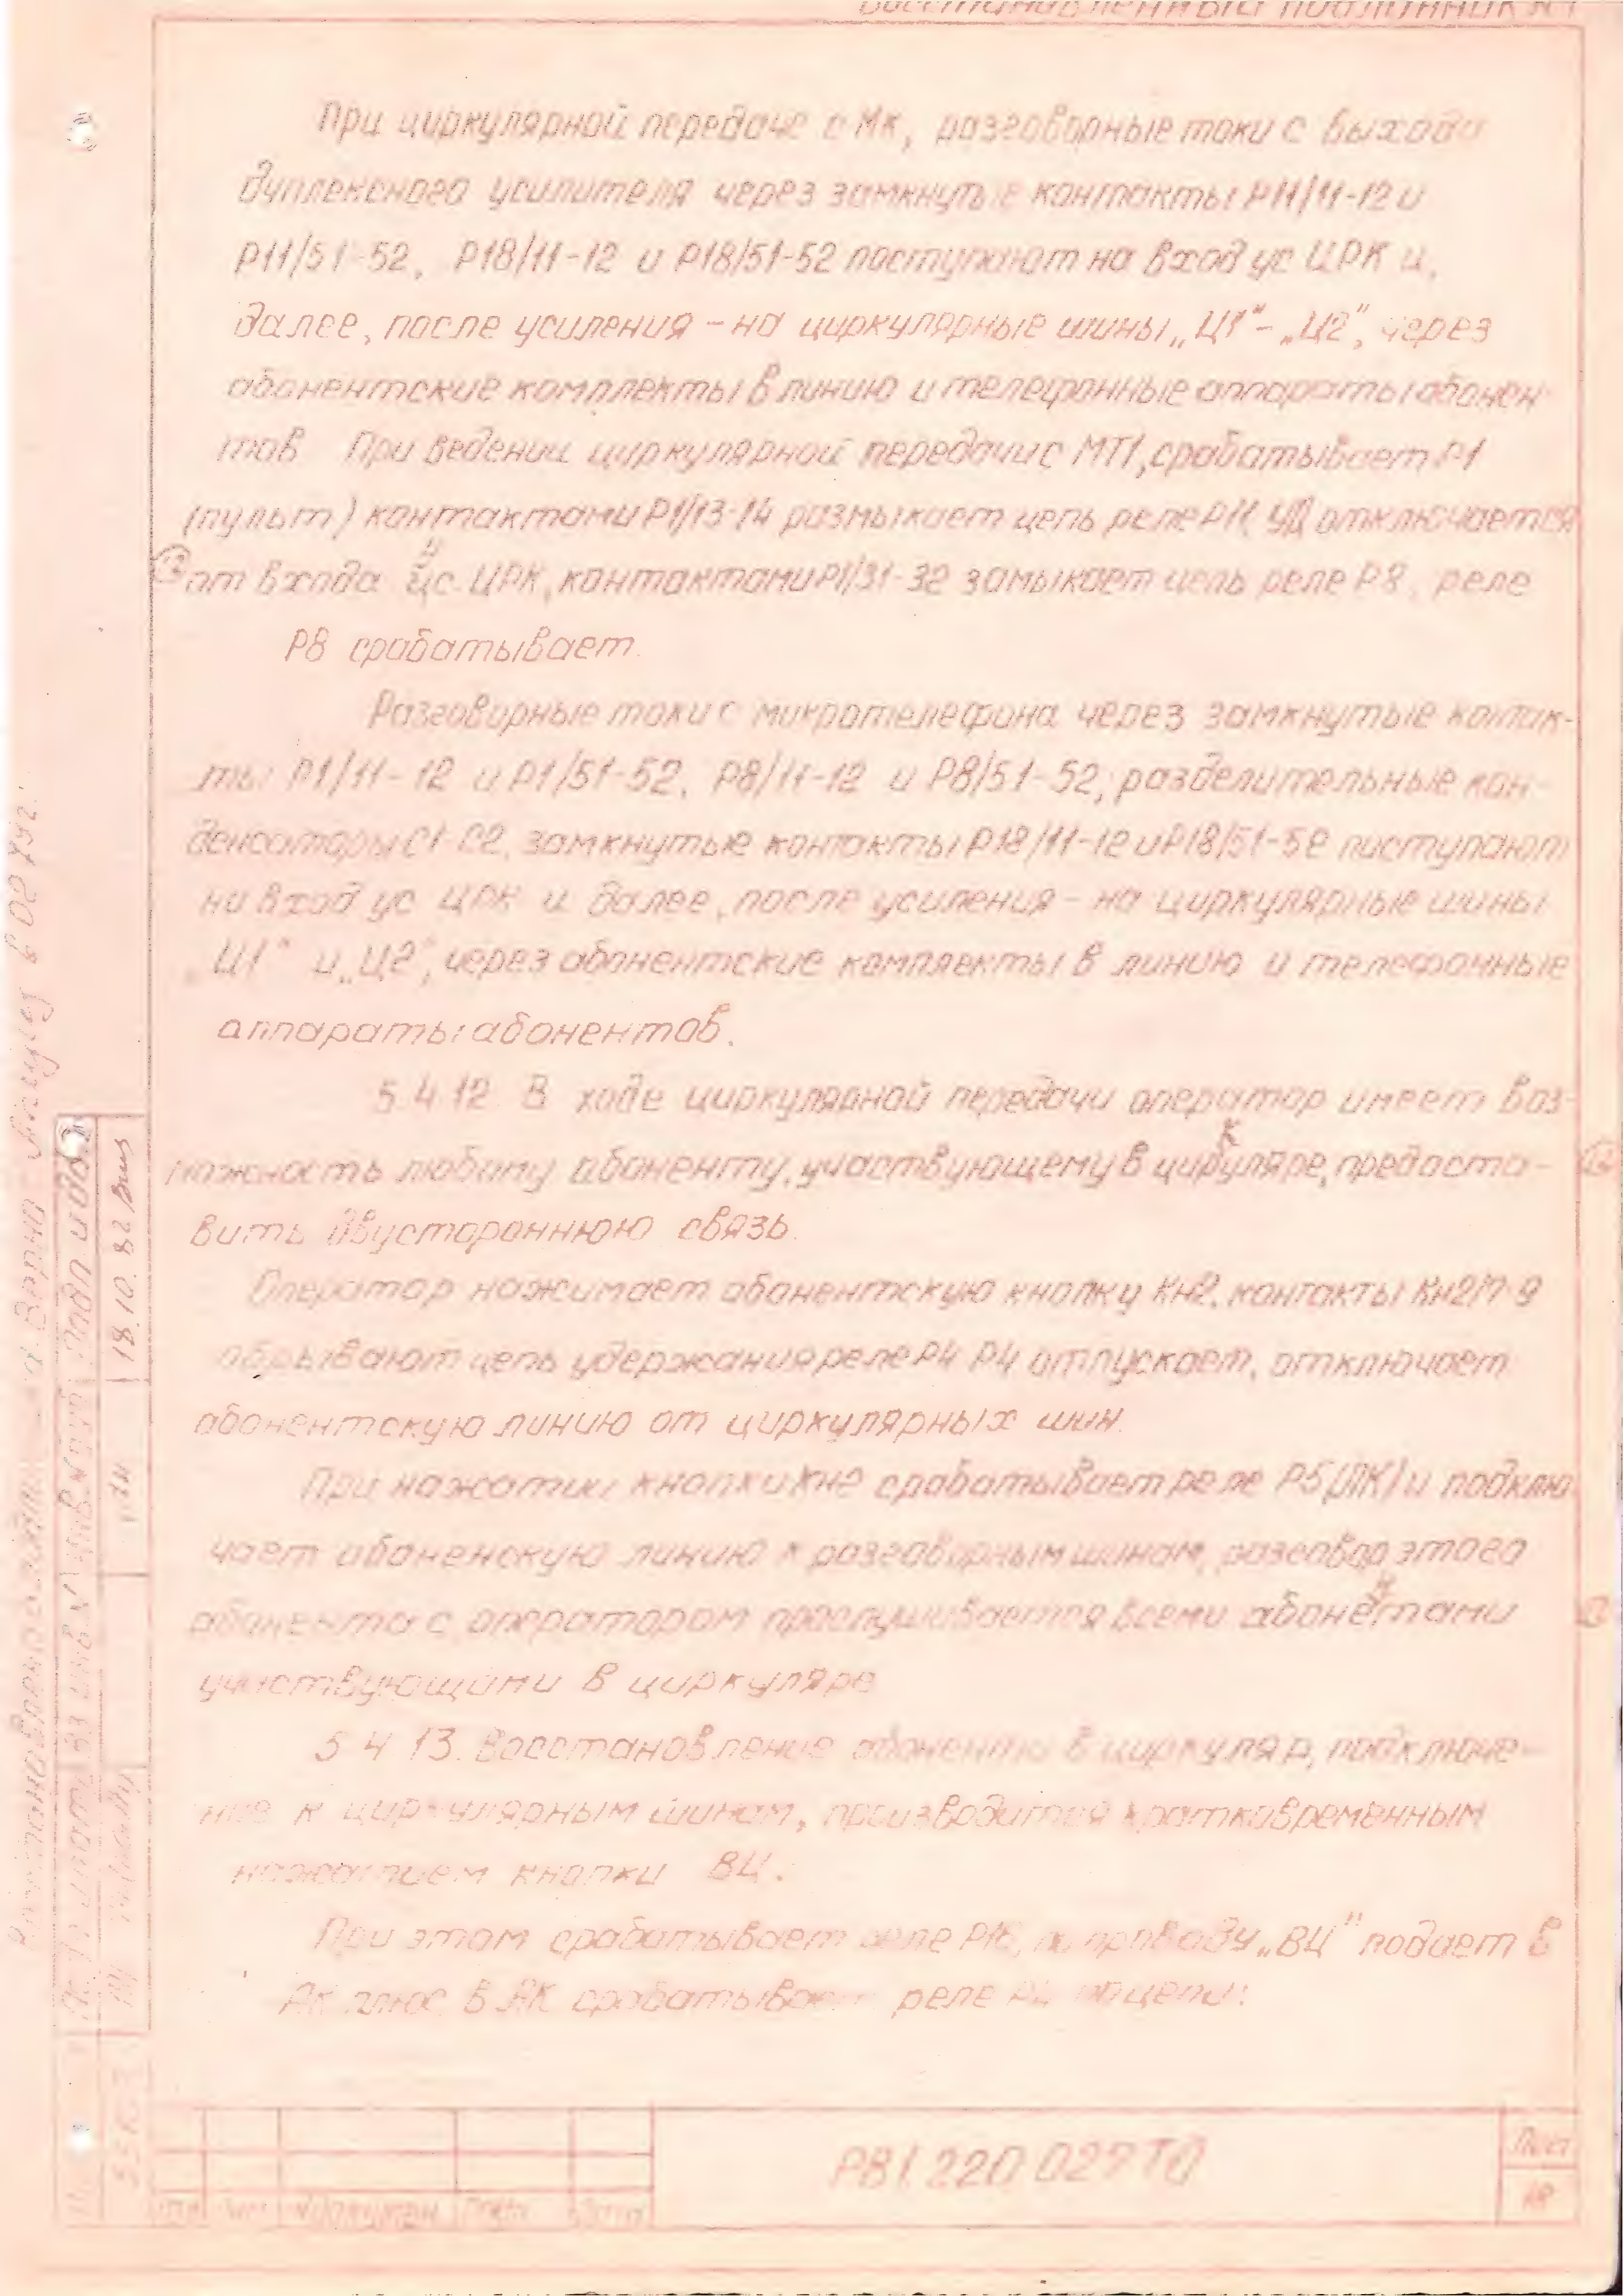 При циркулярной передаче с Мк, разговорные токи с выхода
дуплексного усилителя через замкнутые контакты Р11/11-12 и
Р11/51-52, Р18/11-12 и Р18/51-52 поступают на вход ус ЦРК и,
далее, после усиления - на циркулярные шины „Ц1" - „Ц2", через
абонентские комплекты в линию и телефонные аппараты абонен
тов При ведении циркулярной передачи с МТ1, срабатывает Р1
(пульт) контактами Р1/13-14 размыкает цепь реле Р11, УД отключается
от входа ус. ЦРК, контактами Р1/31-32 замыкает цепь реле Р8, реле
Р8 срабатывает.
Разговорные токи с микротелефона через замкнутые контак-
ты Р1/11-12 и Р1/51-52, Р8/11-12 и Р8/51-52, разделительные кон-
денсаторы С1-С2, замкнутые контакты Р18/11-12 и Р18/51-52 поступают
на вход ус ЦРК и далее, после усиления - на циркулярные шины
„Ц1" и „Ц2", через абонентские комплекты в линию и телефонные
аппараты абонентов.
5.4.12 В ходе циркулярной передачи оператор имеет воз-
можность любому абоненту, участвующему в циркуляре, предоста-
вить двустороннюю связь.
Оператор нажимает абонентскую кнопку Кн2, контакты Кн2/7-9
обрывают цепь удержания реле Р4 Р4 отпускает, отключает
абонентскую линию от циркулярных шин.
При нажатии кнопки Кн2 срабатывает реле Р5(ПК) и подклю
чает абоненскую линию к разговорным шинам, разговор этого
абонента с оператором прослушивается всеми абонентами
участвующими в циркуляре
5.4.13. Восстановление абонента в циркуляр, подключе-
ние к циркулярным шинам, производится кратковременным
нажатием кнопки ВЦ.
При этом срабатывает реле Р16, по проводу „ВЦ" подает в
АК плюс В АК срабатывает реле Р4 по цепи:
РВ1.220.027ТО
Лист
18
18.10.82
Подп и дата